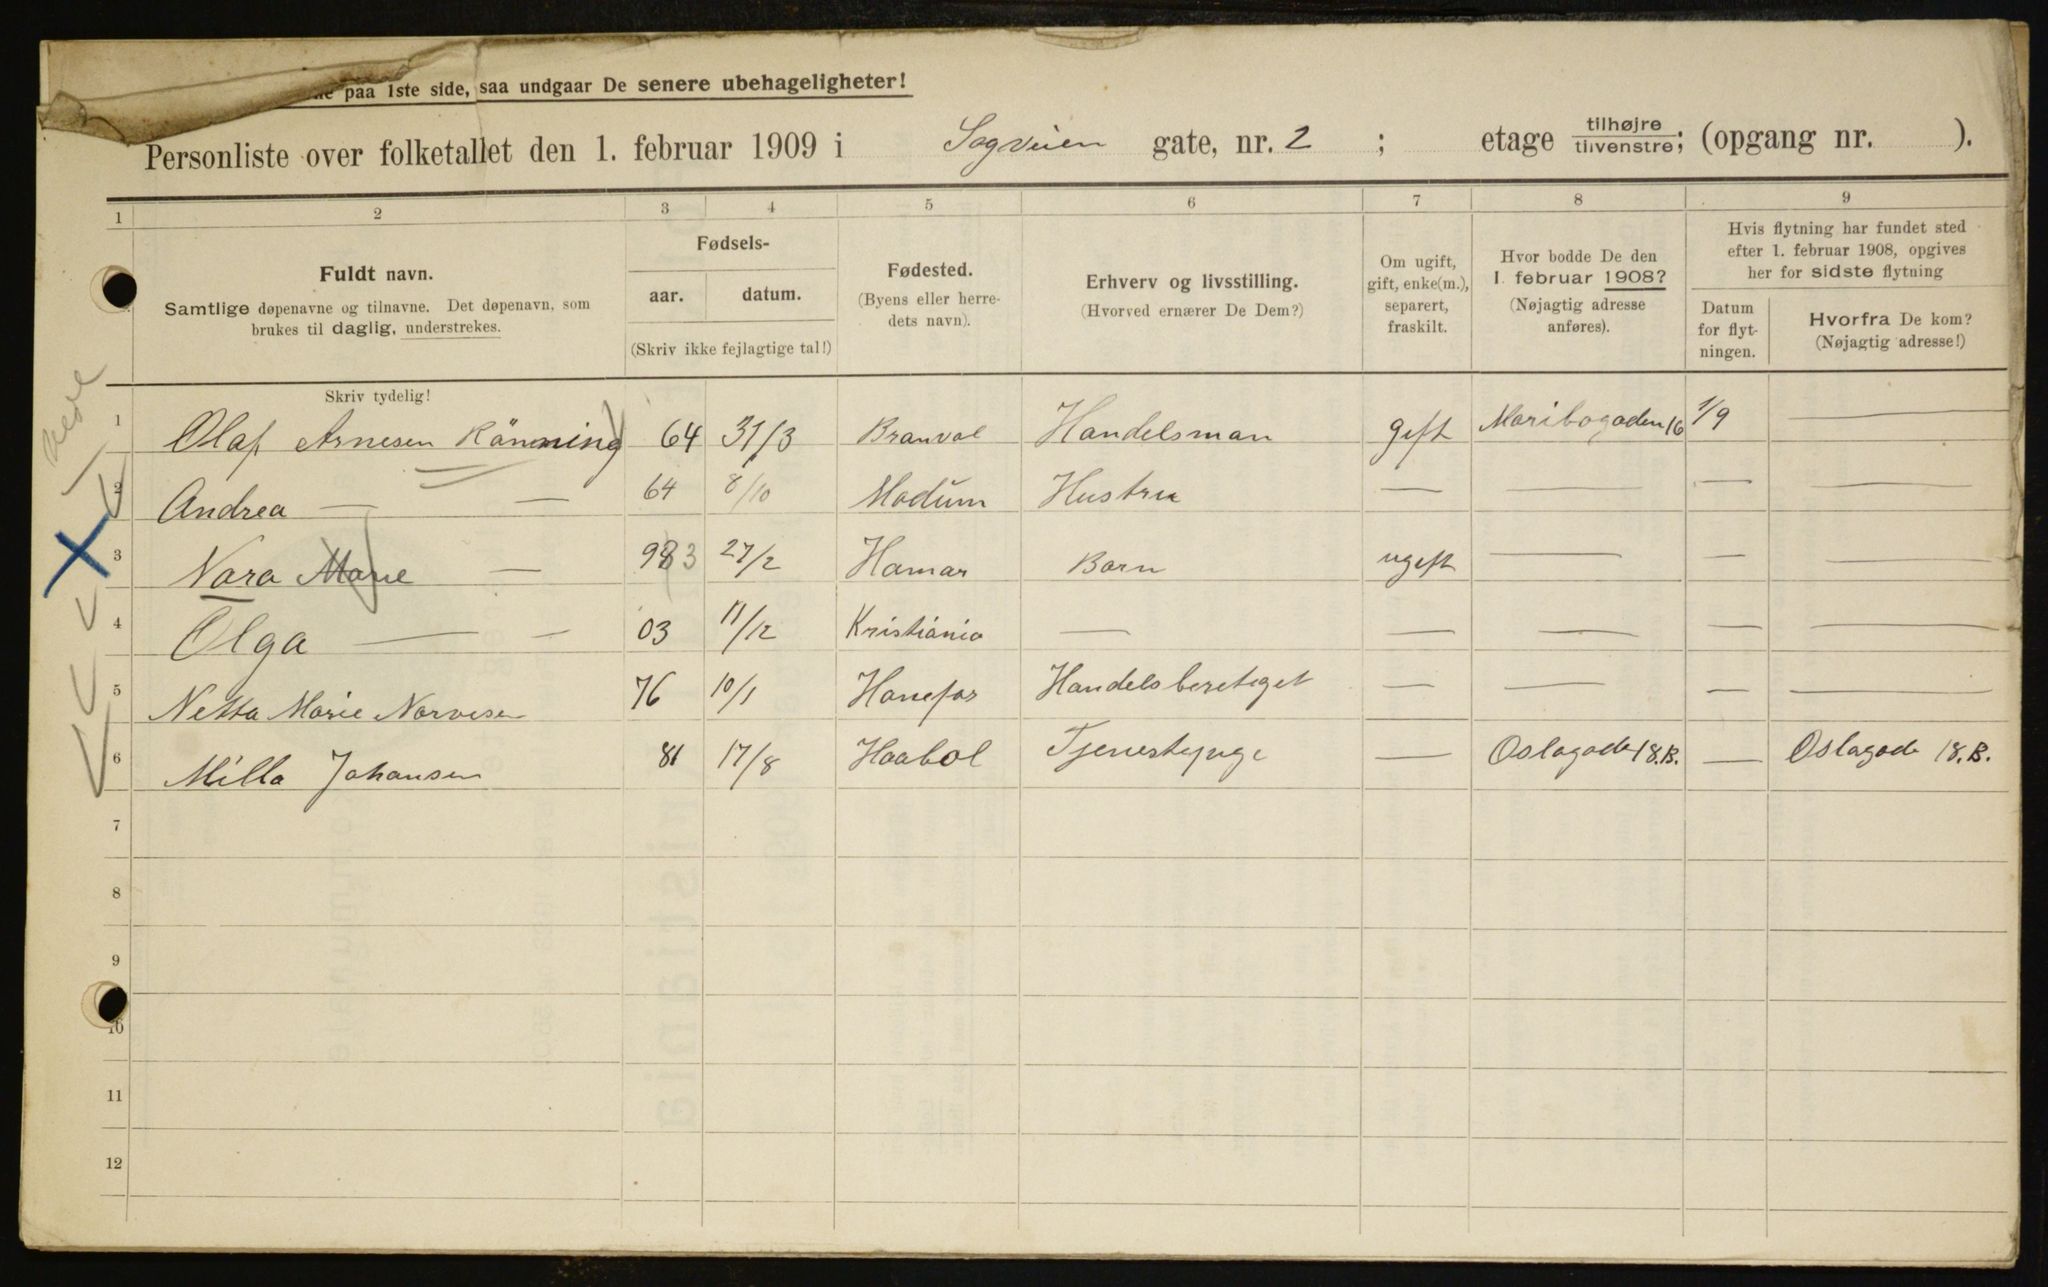 paa 1ste side, saa undgaar De senere ubehageligheter!
Personliste over folketallet den 1. februar 1909 i Sagveien gate, nr. 2 ; etage tilhøjre tilvenstre; (opgang nr. ).
1 2 3 4 5 6 7 8 9
Fuldt navn.
Samtlige døpenavne og tilnavne. Det døpenavn, som
brukes til daglig, understrekes.
Fødsels-
aar. datum.
(Skriv ikke fejlagtige tal!)
Fødested.
(Byens eller herre-
dets navn).
Erhverv og livsstilling.
(Hvorved ernærer De Dem?)
Om ugift,
gift, enke(m.),
separert,
fraskilt.
Hvor bodde De den
1. februar 1908?
(Nøjagtig adresse
anføres).
Hvis flytning har fundet sted
efter 1. februar 1908, opgives
her for sidste flytning
Datum
for flyt-
ningen.
Hvorfra De kom?
(Nøjagtig adresse!)
Skriv tydelig!
1 Olaf Arnesen Rönning 64 31/3 Branval Handelsman gift Maribogaden 16 1/9 —
2 Andrea — — 64 8/10 Modum Hustru — — — —
3 Nara Marie — 983 27/2 Hamar Barn ugift — — —
4 Olga — — 03 11/12 Kristiania — — — — —
5 Netta Marie Narvesen 76 10/1 Hønefos Handelsberetiget — — — —
6 Milla Johansen 81 17/8 Haabøl Tjenestepige — Oslogade 18.B. — Oslogade 18.B.
7
8
9
10
11
12